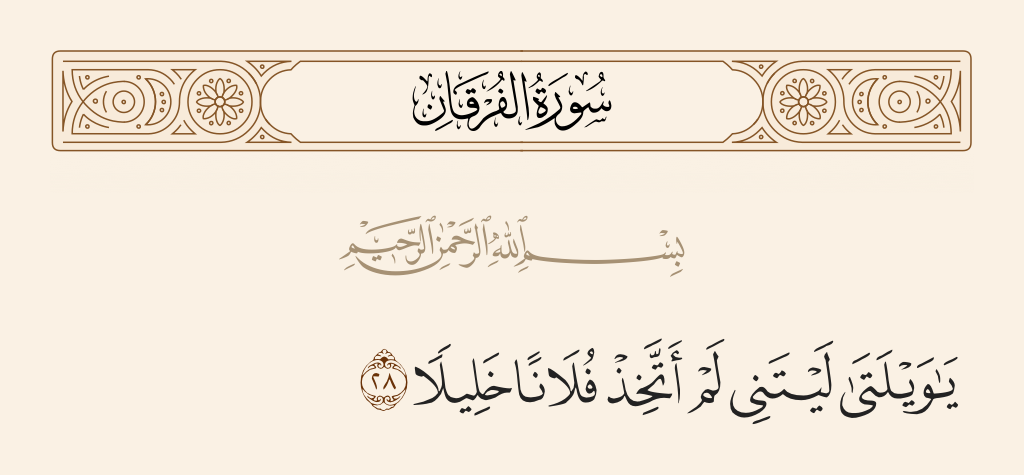 سُورَةُ الفُرْقَانِ
بِسْمِ ٱللَّهِ ٱلرَّحْمَٰنِ ٱلرَّحِيمِ
يَٰوَيْلَتَىٰ لَيْتَنِى لَمْ أَتَّخِذْ فُلَانًا خَلِيلًا ٢٨